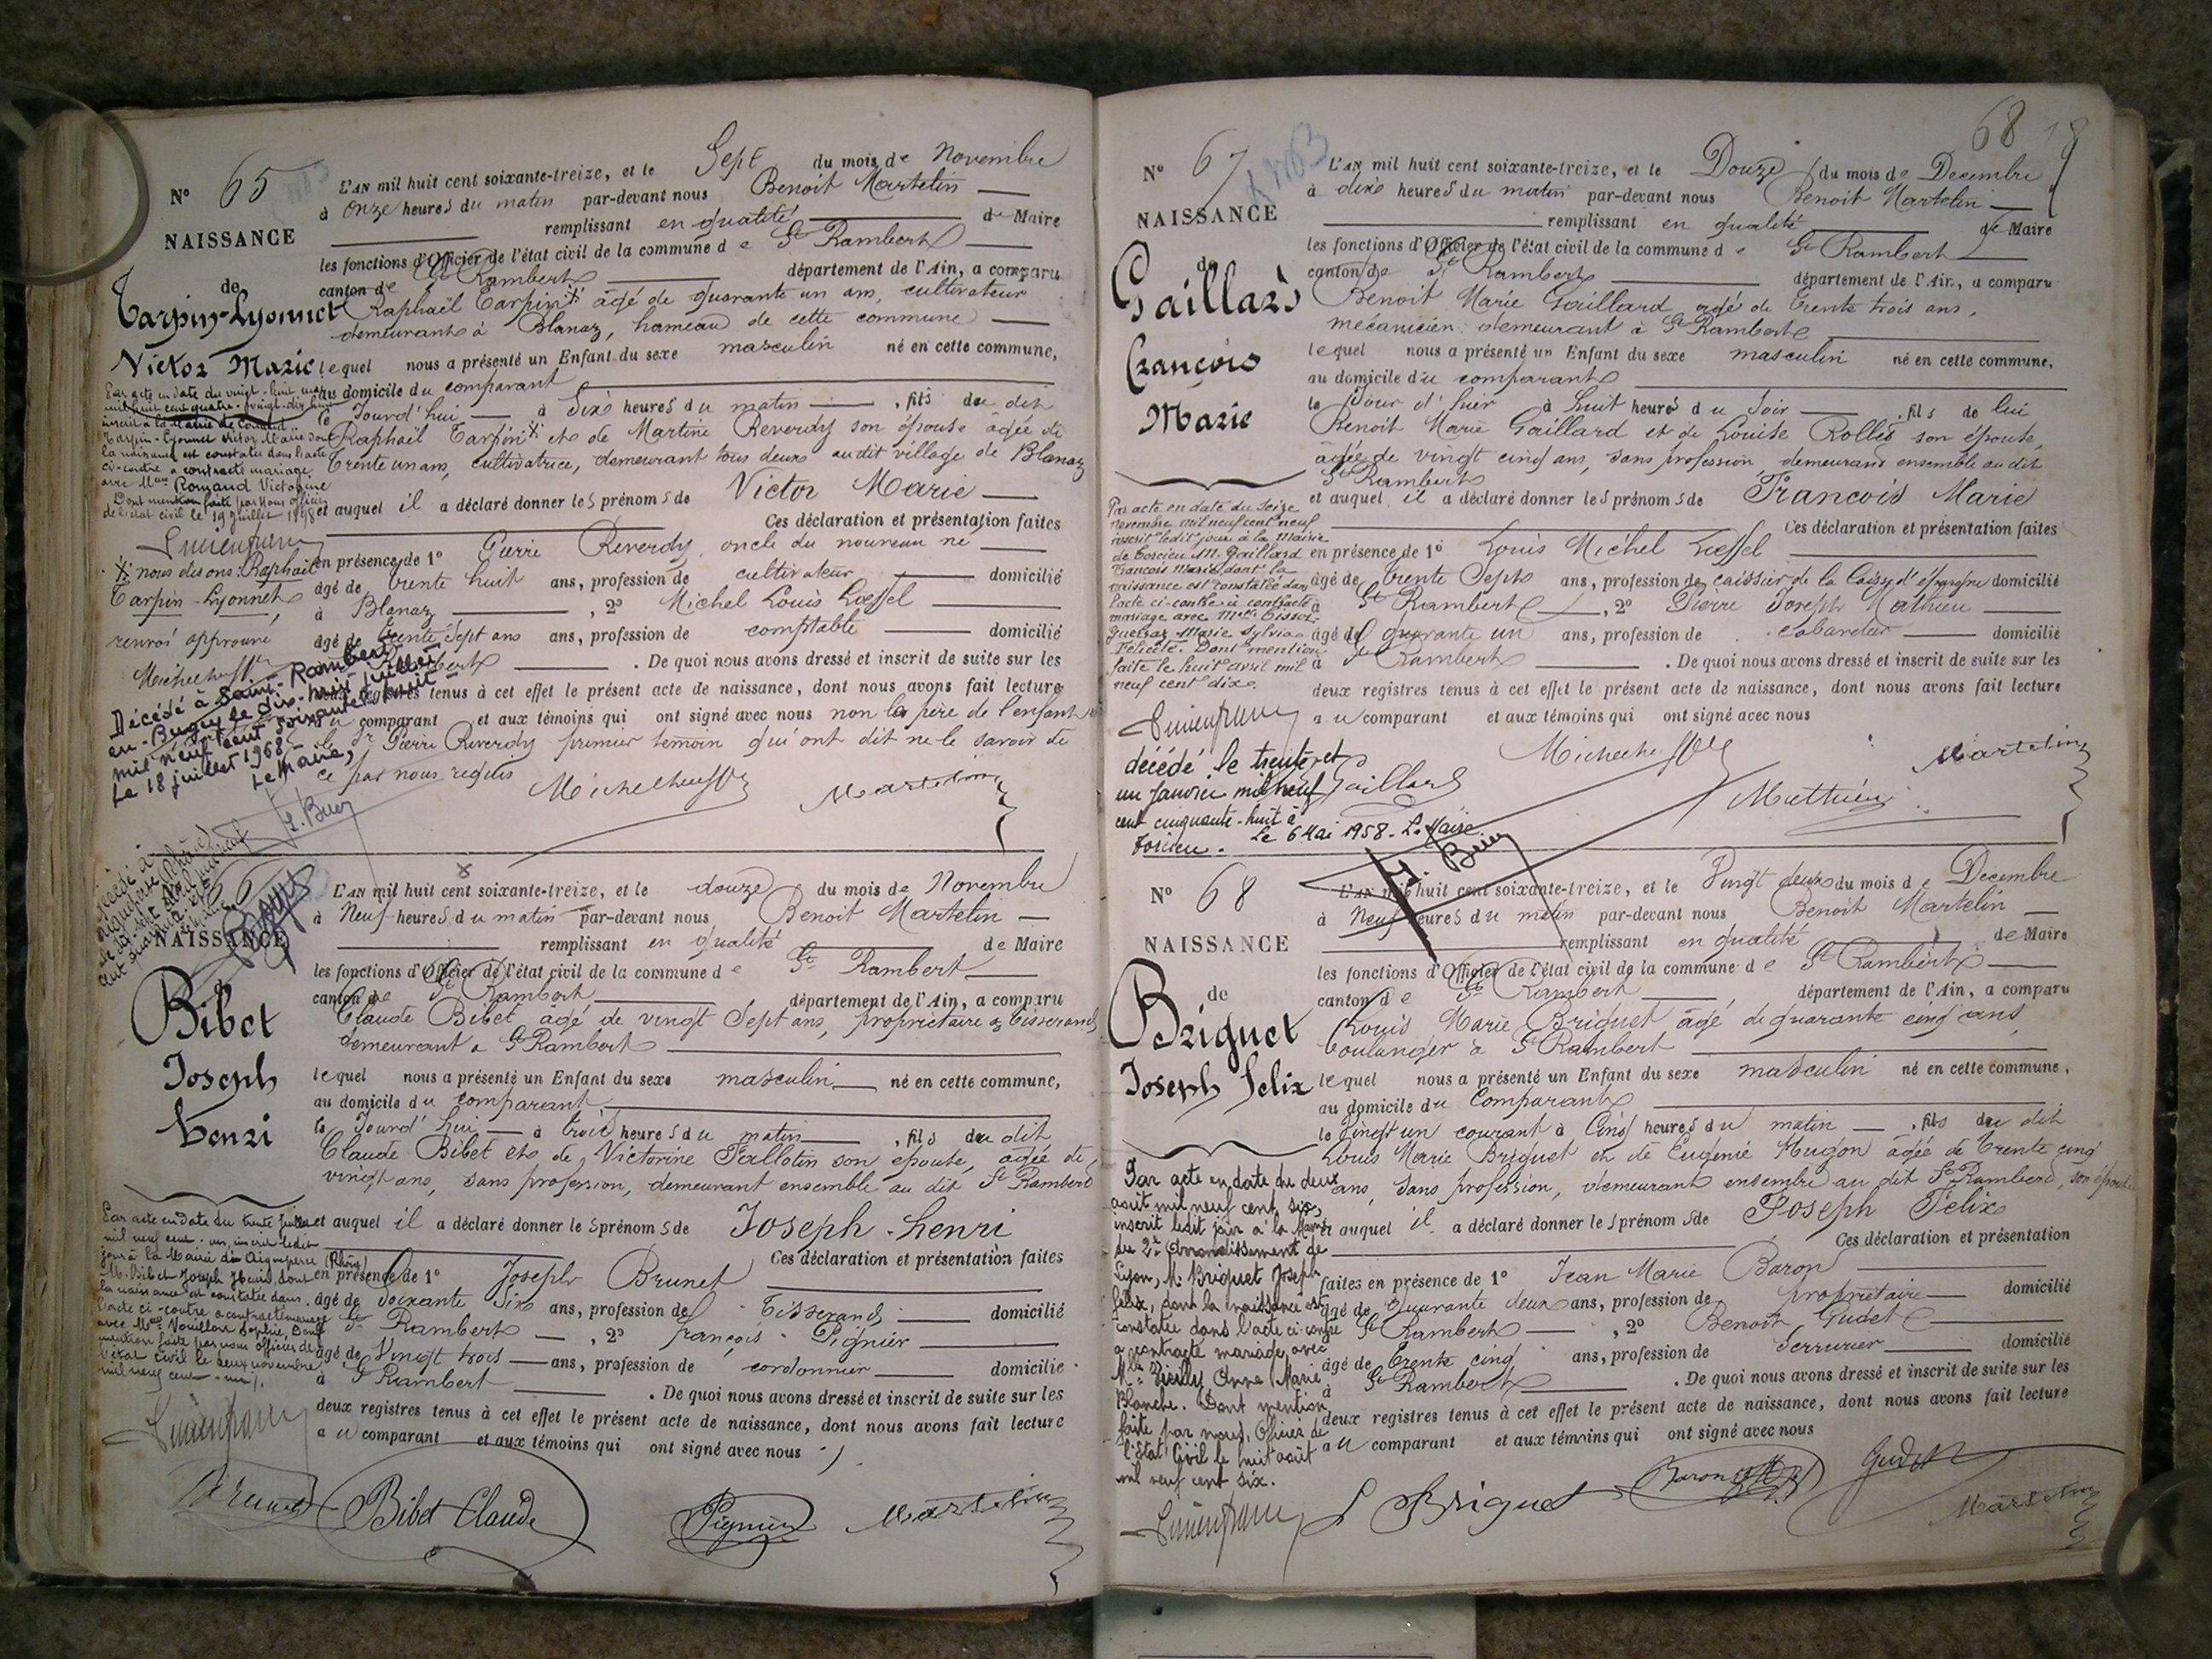 N° 65
NAISSANCE
de
Tarpin-Lyonnet
Victor Marie
L'AN mil huit cent soixante-treize, et le Sept du mois de Novembre
à onze heures du matin par-devant nous Benoit Martelin
remplissant en qualité de Maire
les fonctions d'Officier de l'état civil de la commune de St Rambert
canton de St Rambert département de l'Ain, a comparu
Raphaël Tarpin X âgé de quarante un ans, cultivateur
demeurant à Blanaz, hameau de cette commune
lequel nous a présenté un Enfant du sexe masculin né en cette commune,
au domicile du comparant
le Jourd'hui à Six heures du matin, fils du dit
Raphaël Tarpin X et de Martine Reverdy son épouse âgée de
Trente un ans, cultivatrice, demeurant tous deux audit village de Blanaz
et auquel il a déclaré donner les prénoms de Victor Marie
Ces déclaration et présentation faites
en présence de 1° Pierre Reverdy, oncle du nouveau né
âgé de trente huit ans, profession de cultivateur domicilié
à Blanaz, 2° Michel Louis Loeffel
âgé de trente sept ans ans, profession de comptable domicilié
à St Rambert. De quoi nous avons dressé et inscrit de suite sur les
deux registres tenus à cet effet le présent acte de naissance, dont nous avons fait lecture
au comparant et aux témoins qui ont signé avec nous non le père de l'enfant
Pierre Reverdy premier témoin qu'ont dit ne le savoir de
ce par nous requis
Martelin
Par acte en date du vingt-huit mai
mil huit cent quatre-vingt-dix huit
inscrit à la Mairie de
Tarpin-Lyonnet Victor Marie dont
la naissance est constatée dans l'acte
ci-contre a contracté mariage
avec Melle Romand Victorine
Dont mention faite par Nous officier
de l'état civil le 19 Juillet 1898
X nous disons: Raphaël
Tarpin-Lyonnet,
renvoi approuvé
Décédé à Saint-Rambert
en-Bugey le dix-huit juillet
mil neuf cent soixante huit
Le 18 juillet 1968
Le Maire,
66
NAISSANCE
de
Bibet
Joseph
henri
L'AN mil huit cent soixante-treize, et le douze du mois de Novembre
à Neuf heures du matin par-devant nous Benoit Martelin
remplissant en qualité de Maire
les fonctions d'Officier de l'état civil de la commune de St Rambert
canton de St Rambert département de l'Ain, a comparu
Claude Bibet âgé de vingt Sept ans, propriétaire et tisserand
demeurant à St Rambert
lequel nous a présenté un Enfant du sexe masculin né en cette commune,
au domicile du comparant
le Jourd'hui à trois heures du matin, fils du dit
Claude Bibet et de Victorine Fallotin son épouse, âgée de
vingt ans, sans profession, demeurant ensemble au dit St Rambert
et auquel il a déclaré donner les prénoms de Joseph-henri
Ces déclaration et présentation faites
en présence de 1° Joseph Brunet
âgé de soixante Six ans, profession de Tisserand domicilié
à St Rambert, 2° françois Pignier
âgé de Vingt trois ans, profession de cordonnier domicilié
à St Rambert. De quoi nous avons dressé et inscrit de suite sur les
deux registres tenus à cet effet le présent acte de naissance, dont nous avons fait lecture
au comparant et aux témoins qui ont signé avec nous
Brunet Bibet Claude Pignier Martelin
Par acte en date du trente juillet
mil neuf cent-un, inscrit ledit
jour à la Mairie de Aigueperse (Rhône)
M. Bibet Joseph Henri, dont
la naissance est constatée dans
l'acte ci-contre a contracté mariage
avec Melle Vouillon Sophie, Dont
mention faite par nous officier de
l'état civil le deux novembre
mil neuf cent-un.
68
N° 67
NAISSANCE
de
Gaillard
François
Marie
L'AN mil huit cent soixante-treize, et le Douze du mois de Decembre
à dix heures du matin par-devant nous Benoit Martelin
remplissant en qualité de Maire
les fonctions d'Officier de l'état civil de la commune de St Rambert
canton de St Rambert département de l'Ain, a comparu
Benoit Marie Gaillard âgé de trente trois ans,
mécanicien demeurant à St Rambert
lequel nous a présenté un Enfant du sexe masculin né en cette commune,
au domicile du comparant
le Jour d'hier à huit heures du Soir, fils de lui
Benoit Marie Gaillard et de Louise Rollet son épouse,
âgée de vingt cinq ans, sans profession, demeurant ensemble au dit
St Rambert
et auquel il a déclaré donner les prénoms de François Marie
Ces déclaration et présentation faites
en présence de 1° Louis Michel Loeffel
âgé de trente Sept ans, profession de caissier de la Caisse d'épargne domicilié
à St Rambert, 2° Pierre Joseph Mathieu
âgé de quarante un ans, profession de cabaretier domicilié
à St Rambert. De quoi nous avons dressé et inscrit de suite sur les
deux registres tenus à cet effet le présent acte de naissance, dont nous avons fait lecture
au comparant et aux témoins qui ont signé avec nous
Martelin
Gaillard Mathieu
Par acte en date du seize
novembre mil neuf cent neuf
inscrit ledit jour à la Mairie
de Torcieu M. Gaillard
François Marie dont la
naissance est constatée dans
l'acte ci-contre a contracté
mariage avec Melle
Marie Sylvie
Félicie. Dont mention
faite le huit avril mil
neuf cent dix.
décédé le trente et
un Janvier mil neuf
cent cinquante-huit à
Torcieu. Le 6 Mai 1958 - Le Maire
N° 68
NAISSANCE
de
Briguet
Joseph Felix
L'AN mil huit cent soixante-treize, et le Vingt deux du mois de Decembre
à Neuf heures du matin par-devant nous Benoit Martelin
remplissant en qualité de Maire
les fonctions d'Officier de l'état civil de la commune de St Rambert
canton de St Rambert département de l'Ain, a comparu
Louis Marie Briguet âgé de quarante cinq ans
boulanger à St Rambert
lequel nous a présenté un Enfant du sexe masculin né en cette commune,
au domicile du Comparant
le Vingt un courant à Cinq heures du matin, fils du dit
Louis Marie Briguet et de Eugénie Hugon âgée de Trente cinq
ans, Sans profession, demeurant ensemble au dit St Rambert, son épouse
et auquel il a déclaré donner les prénoms de Joseph Félix
Ces déclaration et présentation
faites en présence de 1° Jean Marie Baron
âgé de Quarante deux ans, profession de propriétaire domicilié
à St Rambert, 2° Benoit Gudet
âgé de trente cinq ans, profession de Serrurier domicilié
à St Rambert. De quoi nous avons dressé et inscrit de suite sur les
deux registres tenus à cet effet le présent acte de naissance, dont nous avons fait lecture
au comparant et aux témoins qui ont signé avec nous
L Briguet Baron Gudet Martelin
Par acte en date du deux
août mil neuf cent six,
inscrit ledit jour à la Mairie
du 2e Arrondissement de
Lyon, M. Briguet Joseph
Félix, dont la naissance est
constatée dans l'acte ci-contre
a contracté mariage avec
Melle Anne Marie
Blanche. Dont mention
faite par nous, Officier de
l'état Civil le huit août
mil neuf cent six.